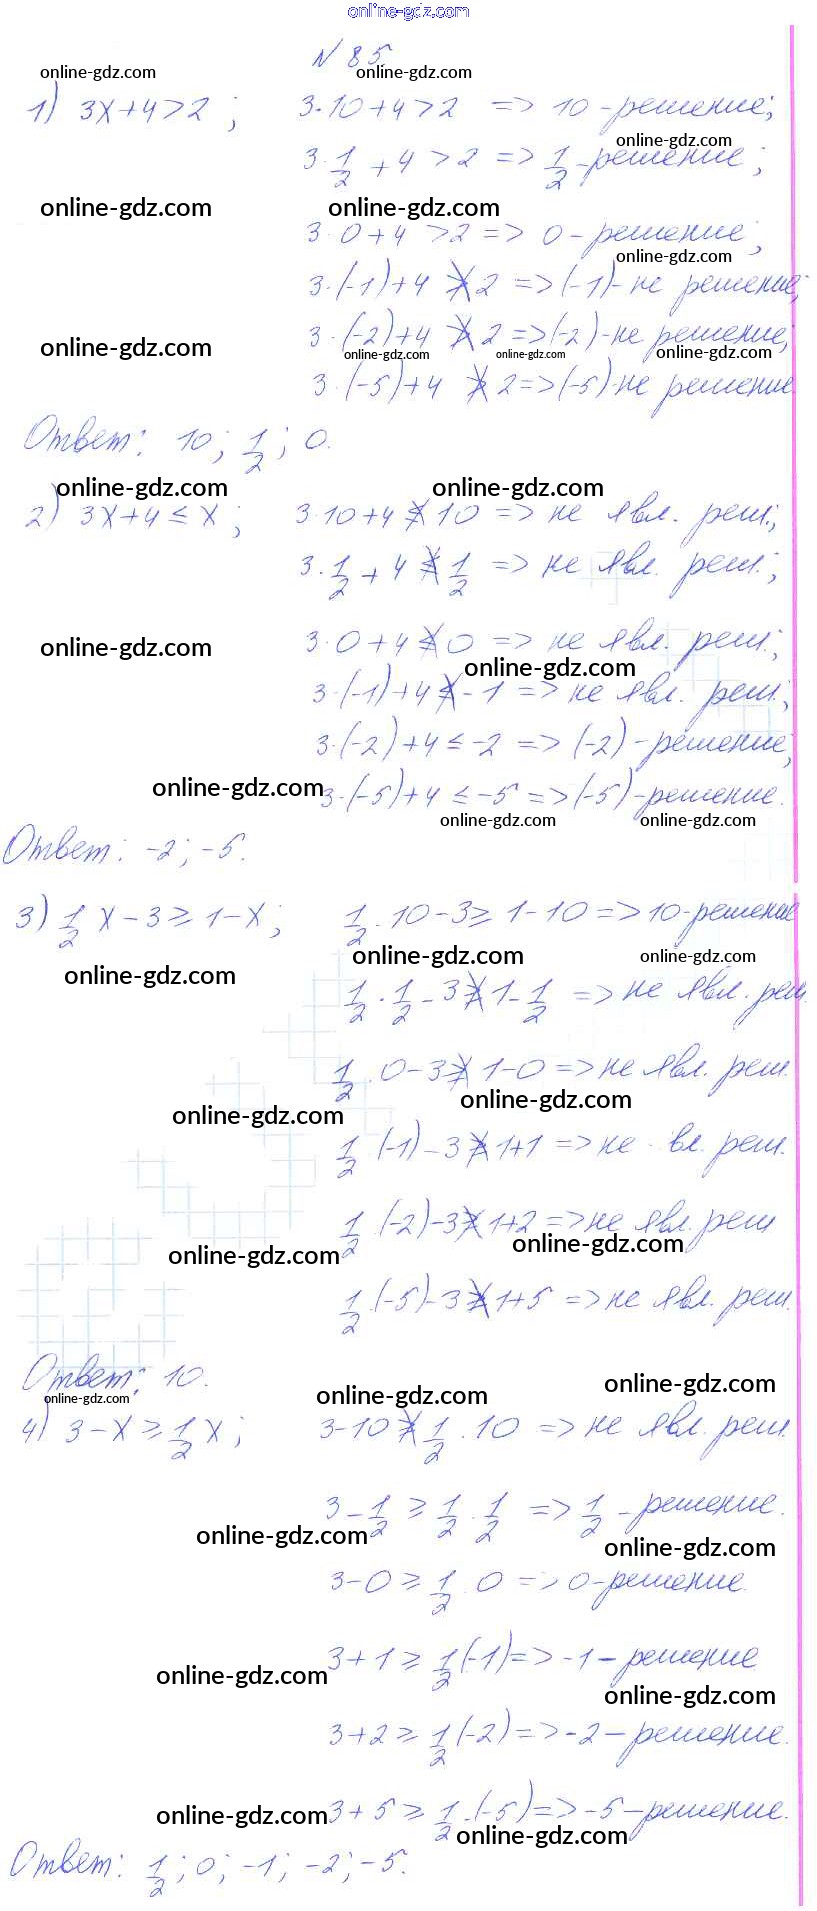 online-gdz.com
N 85
online-gdz.com online-gdz.com
1) 3x+4>2; 3·10+4>2 => 10 - решение;
online-gdz.com
3·1/2+4>2 => 1/2 - решение;
online-gdz.com online-gdz.com
3·0+4>2 => 0 - решение;
online-gdz.com
3·(-1)+4 ≯ 2 => (-1) - не решение;
online-gdz.com
3·(-2)+4 ≯ 2 => (-2) - не решение;
online-gdz.com online-gdz.com online-gdz.com
3·(-5)+4 ≯ 2 => (-5) - не решение.
Ответ: 10; 1/2; 0.
online-gdz.com online-gdz.com
2) 3x+4 ≤ x; 3·10+4 ≰ 10 => не явл. реш.;
3·1/2+4 ≰ 1/2 => не явл. реш.;
online-gdz.com
3·0+4 ≰ 0 => не явл. реш.;
online-gdz.com
3·(-1)+4 ≰ -1 => не явл. реш.;
3·(-2)+4 ≤ -2 => (-2) - решение;
online-gdz.com
3·(-5)+4 ≤ -5 => (-5) - решение.
online-gdz.com online-gdz.com
Ответ: -2; -5.
3) 1/2 x - 3 ≥ 1 - x; 1/2·10-3 ≥ 1-10 => 10 - решение
online-gdz.com online-gdz.com online-gdz.com
1/2·1/2-3 ≱ 1-1/2 => не явл. реш.
1/2·0-3 ≱ 1-0 => не явл. реш.
online-gdz.com online-gdz.com
1/2·(-1)-3 ≱ 1+1 => не вл. реш.
1/2·(-2)-3 ≱ 1+2 => не явл. реш
online-gdz.com online-gdz.com
1/2·(-5)-3 ≱ 1+5 => не явл. реш.
Ответ: 10.
online-gdz.com online-gdz.com online-gdz.com
4) 3-x ≥ 1/2 x; 3-10 ≱ 1/2·10 => не явл. реш.
3-1/2 ≥ 1/2·1/2 => 1/2 - решение.
online-gdz.com online-gdz.com
3-0 ≥ 1/2·0 => 0 - решение.
3+1 ≥ 1/2(-1) => -1 - решение
online-gdz.com online-gdz.com
3+2 ≥ 1/2(-2) => -2 - решение.
online-gdz.com
3+5 ≥ 1/2·(-5) => -5 - решение.
online-gdz.com
Ответ: 1/2; 0; -1; -2; -5.